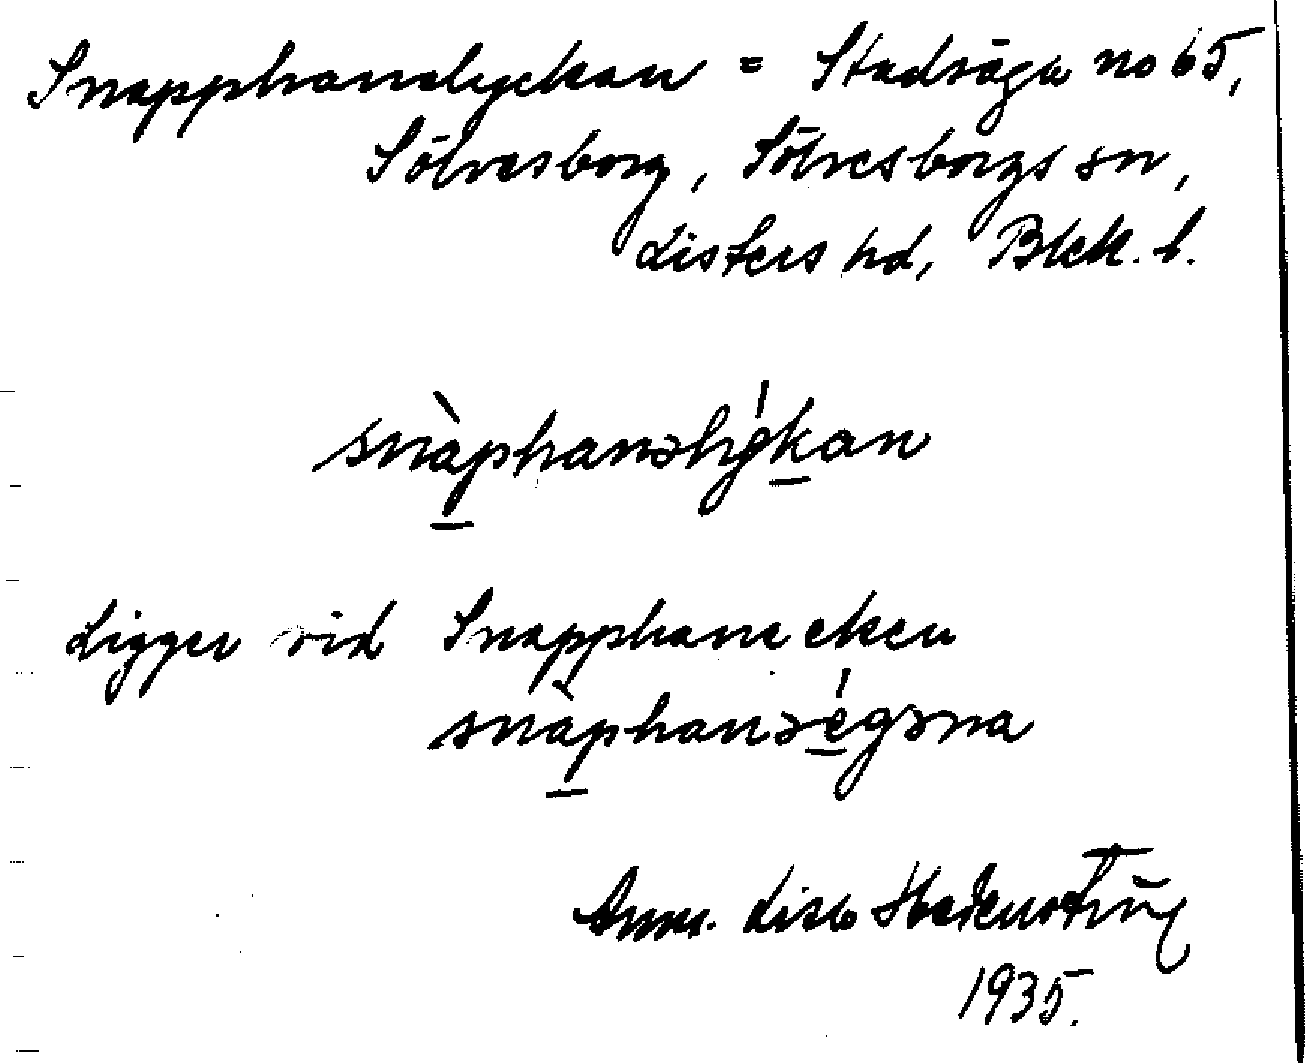 Snapphanalyckan = Stadsäga no 65,
Sölvesborg, Sölvesborgs sn,
Listers hd, Blek. l.
snàphanəlýkan
Ligger vid Snapphaneeken
snàphanəégəna
Anna Lisa
1935.